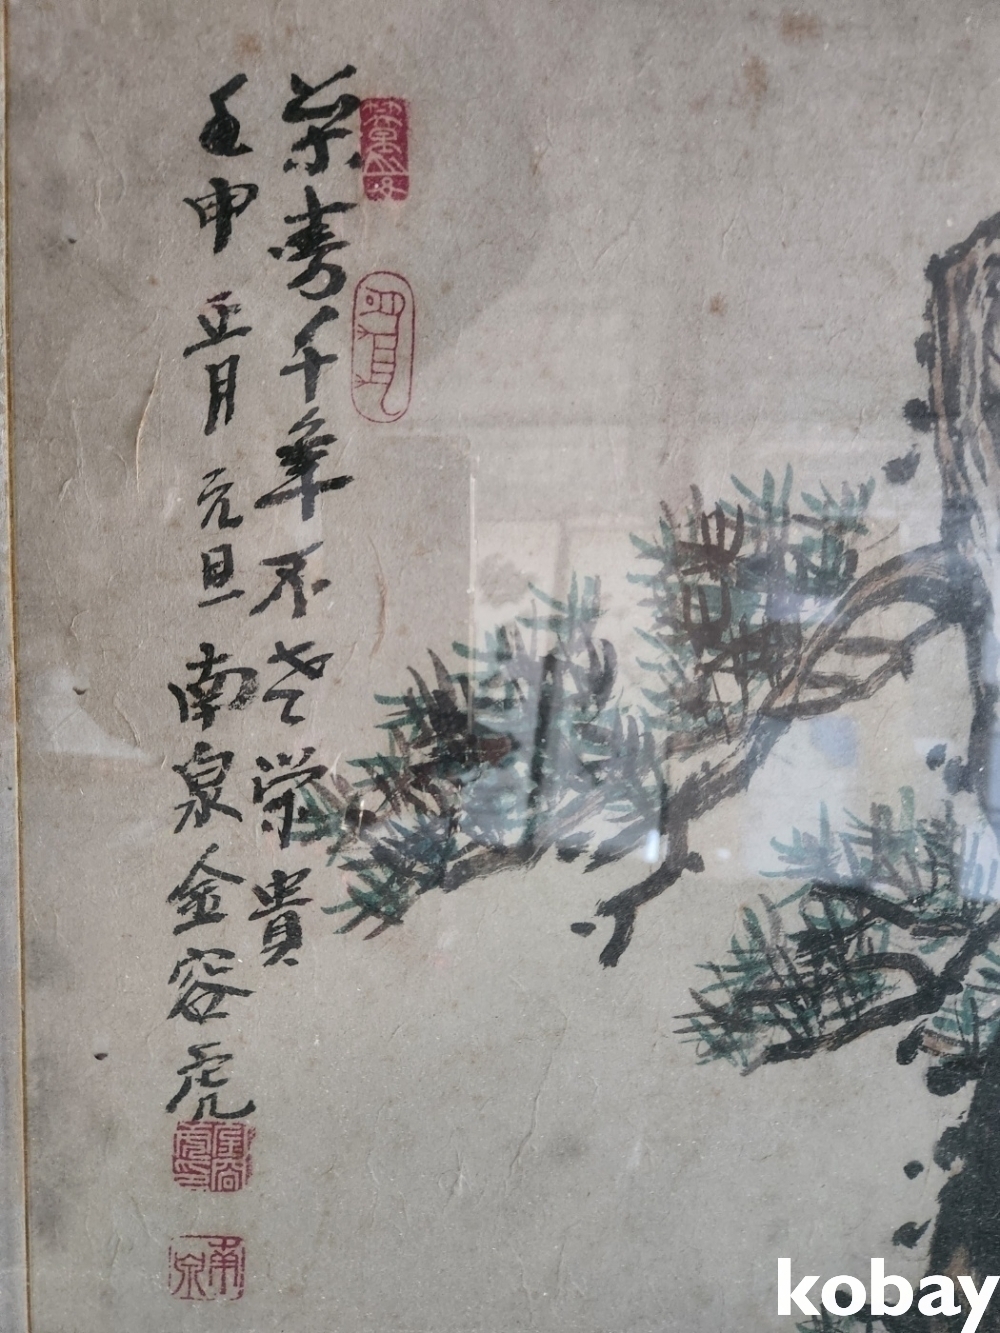 枩壽千年不老栄貴
壬申正月元旦南泉金容虎
南泉
kobay